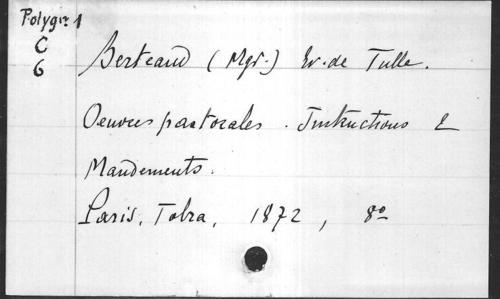 Polygr. 1
C
6
Berteaud (Mgr.) Ev. de Tulle.
Oeuvres pastorales. Instructions &
Mandements.
Paris, Tolra, 1872, 8º